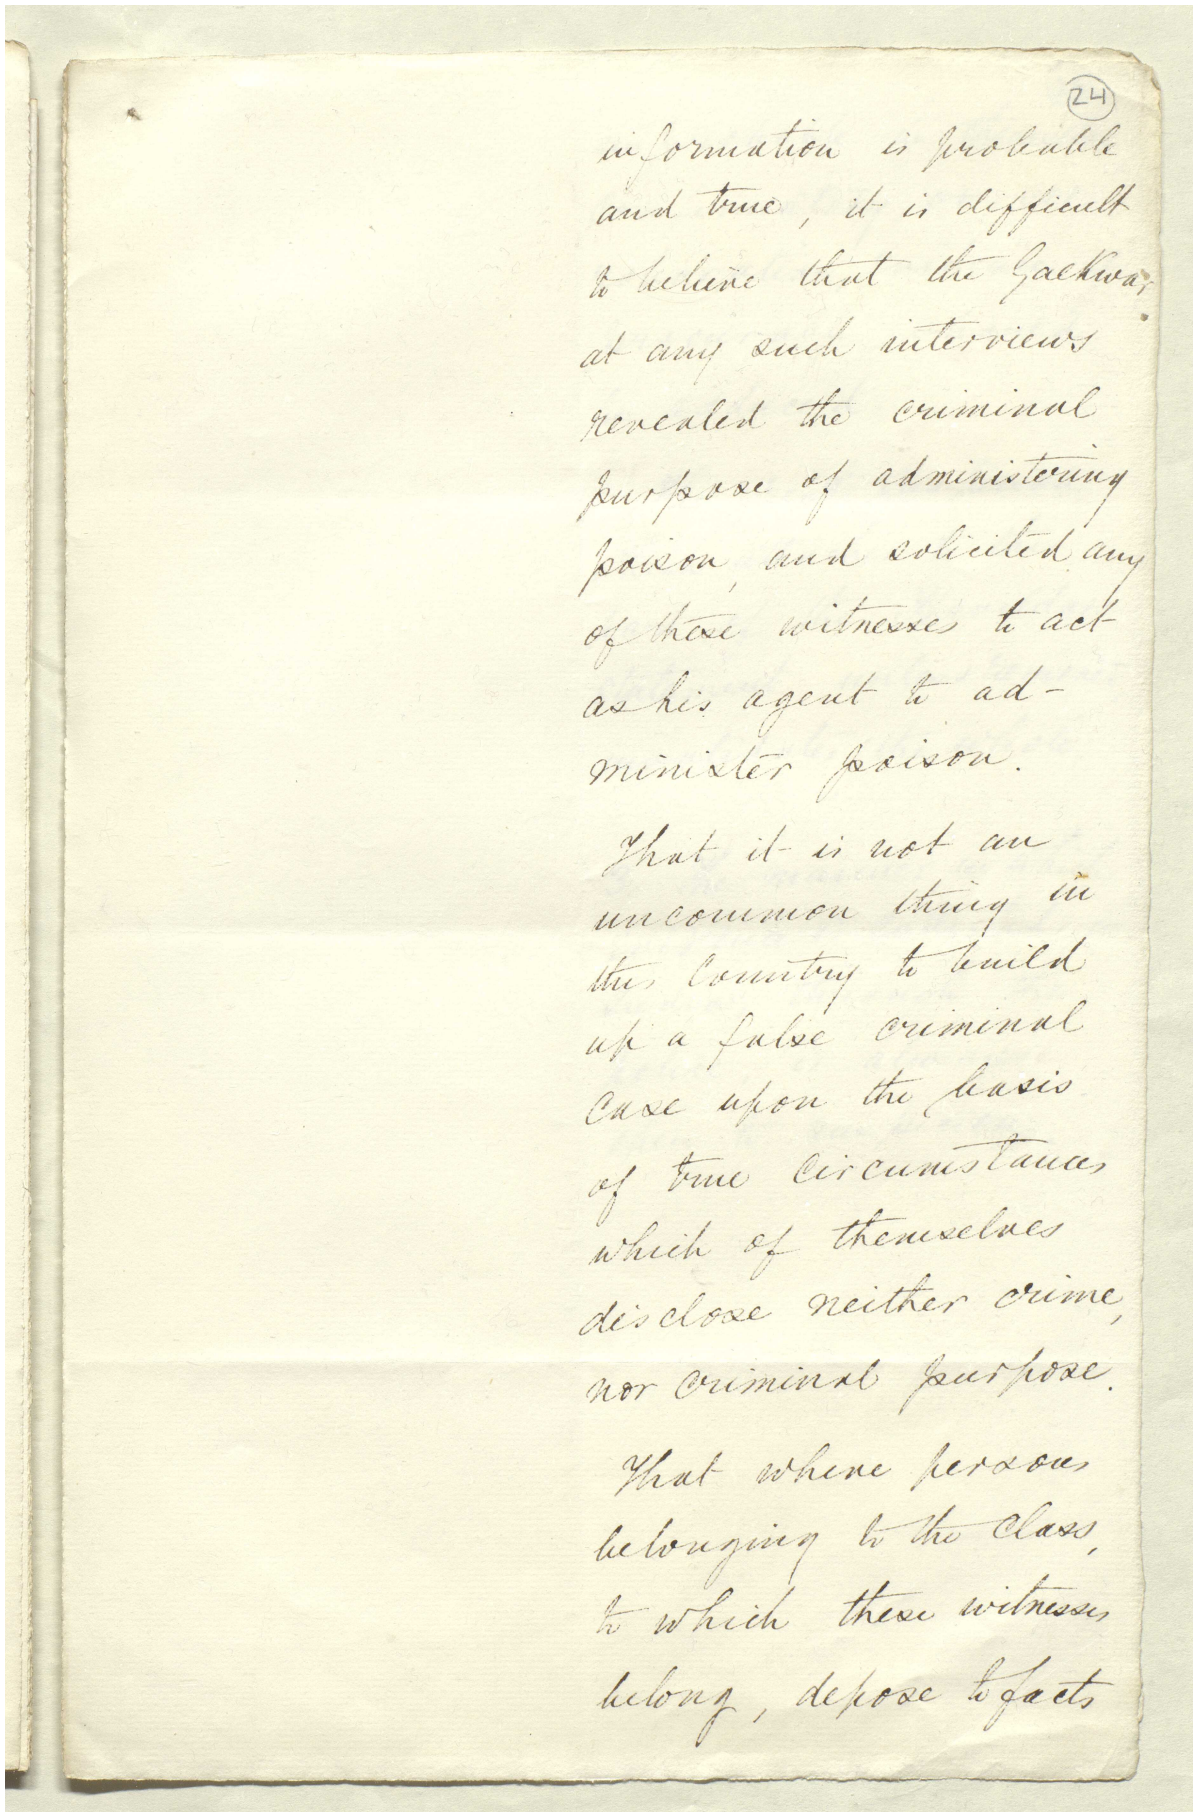 24
information is probable
and true, it is difficult
to believe that the Gaekwar
at any such interviews
revealed the criminal
purpose of administering
poison, and solicited any
of these witnesses to act
as his agent to ad-
minister poison.
That it is not an
uncommon thing in
this Country to build
up a false criminal
case upon the basis
of true circumstances
which of themselves
disclose neither crime,
nor criminal purpose.
That where persons
belonging to the class,
to which these witnesses
belong, depose to facts